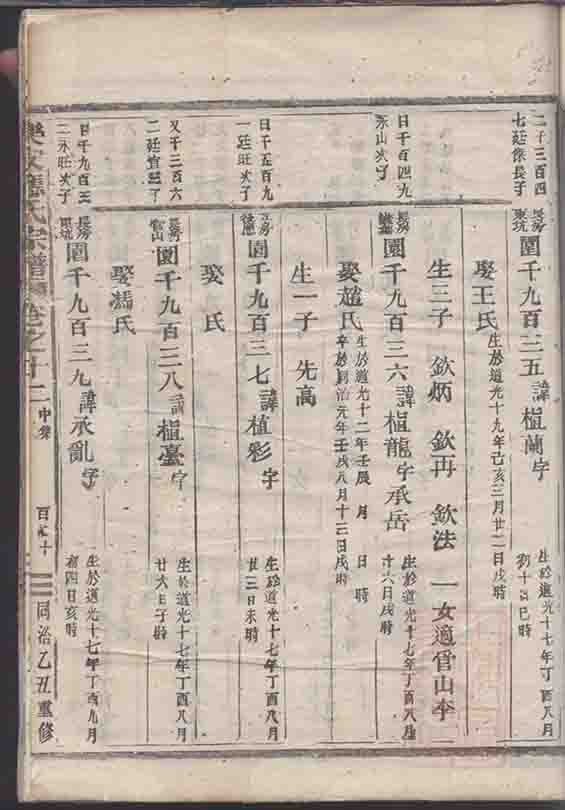 二千三百四
七廷保長子
長房
東坑
園千九百三五諱植蘭字
生於道光十七年丁酉八月
初十日巳時
娶王氏
生於道光十九年己亥三月廿二日戌時
生三子 欽炳 欽再 欽法 一女適管山李
日千百四九
永山次子
長房
園千九百三六諱植龍字承岳
生於道光十七年丁酉八月
十六日戌時
娶趙氏
生於道光十二年壬辰 月 日 時
卒於同治元年壬戌八月十三日戌時
生一子 先高
日千五百九
一廷旺次子
長房
園千九百三七諱植彩字
生於道光十七年丁酉八月
廿三日未時
娶 氏
又千三百六
二廷宜三子
長房
園千九百三八諱植臺字
生於道光十七年丁酉八月
廿六日子時
娶馮氏
日千九百三
二永旺次子
長房
東坑
園千九百三九諱承亂字
生於道光十七年丁酉九月
初四日亥時
氏宗譜 卷之十二 中集 百六十 同治乙丑重修